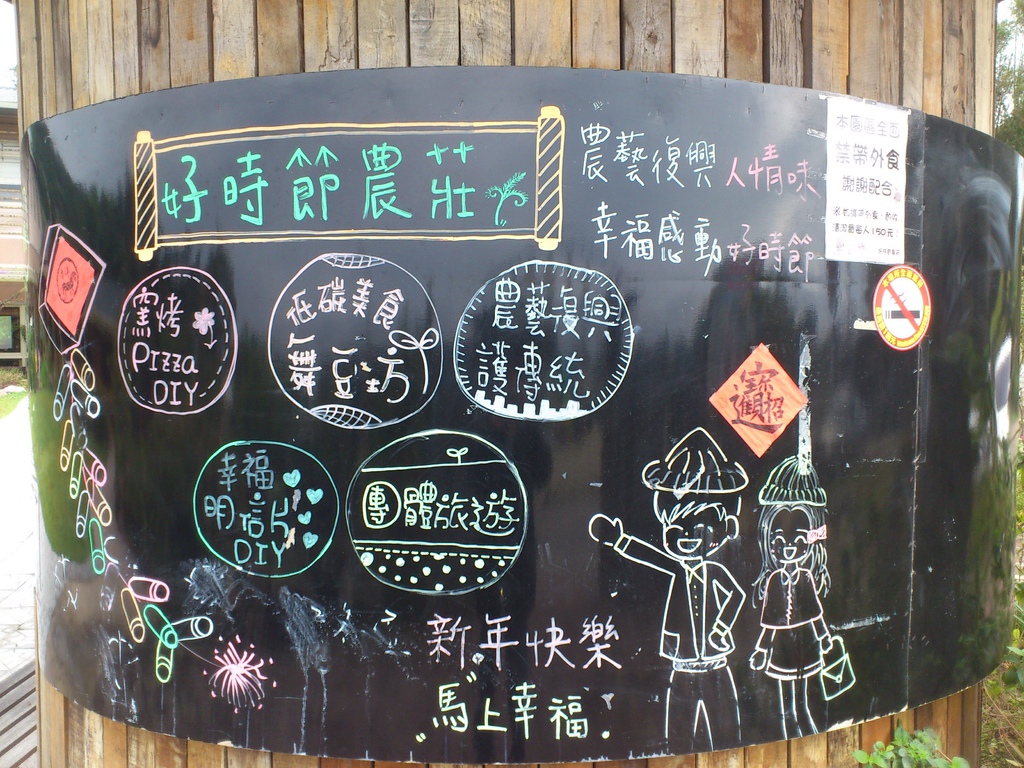 好時節農莊
農藝復興 人情味
幸福感動 好時節
本園區全面
禁帶外食
謝謝配合
窯烤
Pizza
DIY
低碳美食
豆坊
農藝復興
護傳統
招財進寶
幸福
明信片
DIY
團體旅遊
新年快樂
"馬"上幸福